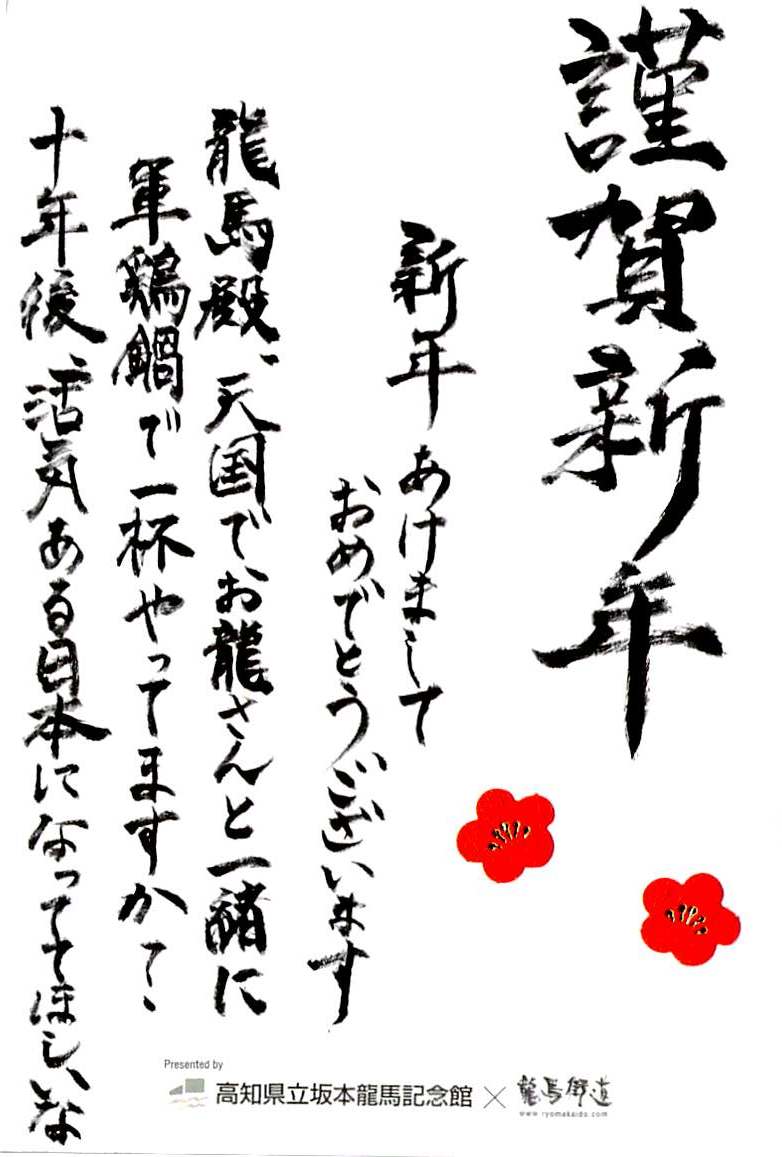 謹賀新年
新年あけまして
おめでとうございます
龍馬殿、天国でお龍さんと一緒に
軍鶏鍋で一杯やってますか?
十年後、活気ある日本になっててほしいな
Presented by
高知県立坂本龍馬記念館 × 龍馬街道
www.ryomakaido.com